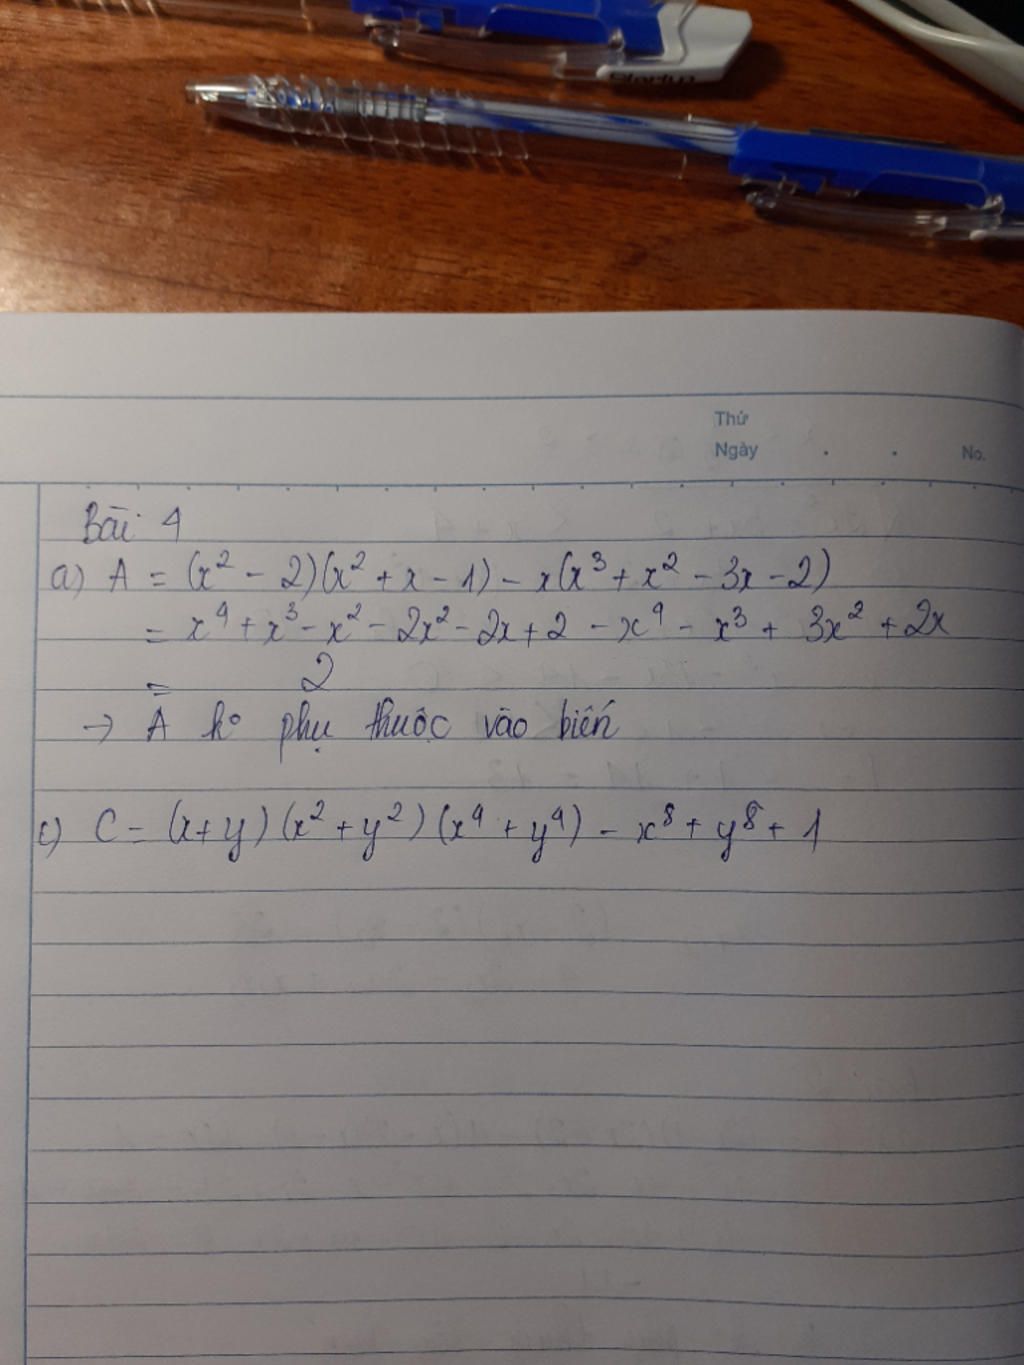 Startup
Thứ
Ngày . . No.
Bài 4
a) A = (x² - 2)(x² + x - 1) - x(x³ + x² - 3x - 2)
= x⁴ + x³ - x² - 2x² - 2x + 2 - x⁴ - x³ + 3x² + 2x
= 2
→ A ko phụ thuộc vào biến
c) C = (x+y)(x² + y²)(x⁴ + y⁴) - x⁸ + y⁸ + 1